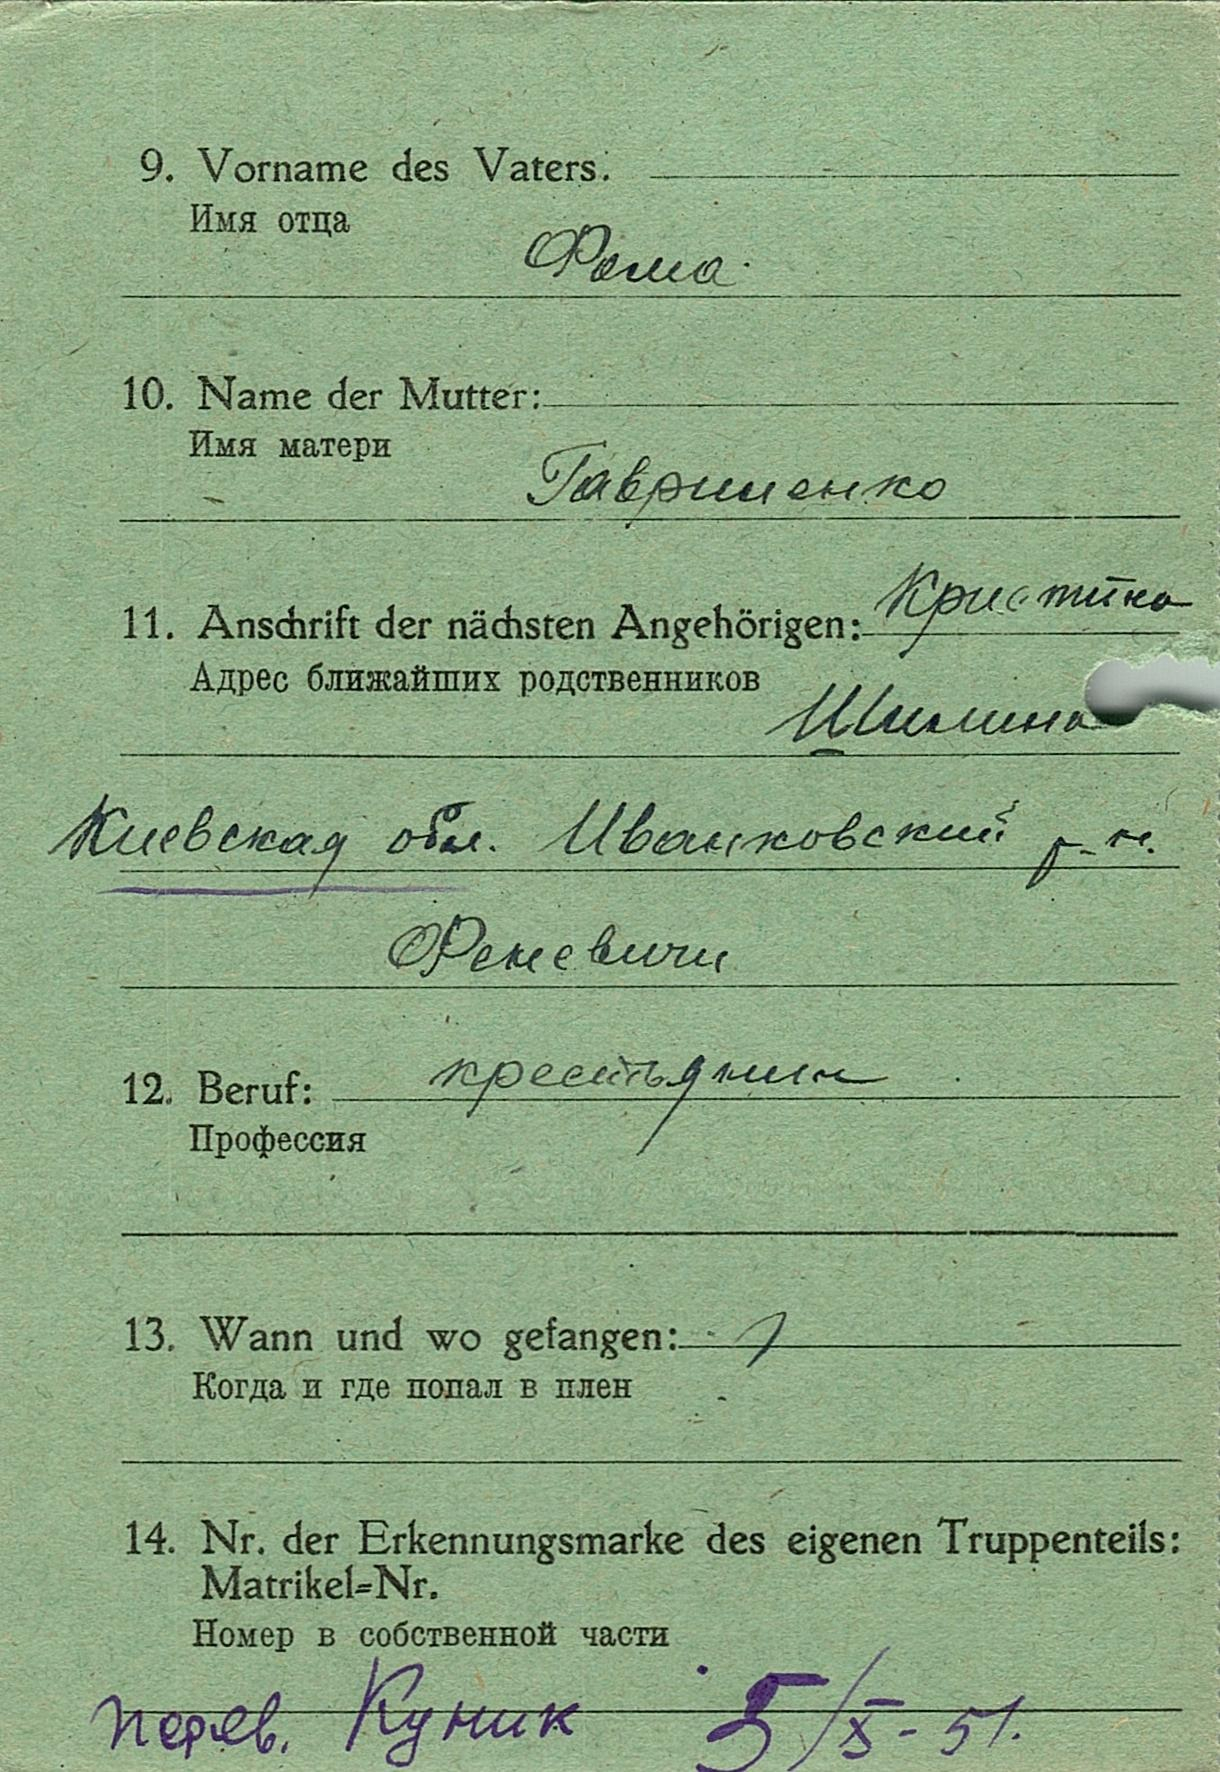 9. Vorname des Vaters:
Имя отца
Фома
10. Name der Mutter:
Имя матери
Гавриленко
11. Anschrift der nächsten Angehörigen: Кристина
Адрес ближайших родственников
Шилина
Киевская обл. Иванковский р-н.
Феневичи
12. Beruf: крестьянин
Профессия
13. Wann und wo gefangen:
Когда и где попал в плен
14. Nr. der Erkennungsmarke des eigenen Truppenteils:
Matrikel=Nr.
Номер в собственной части
перев. Куник 5/X-51.